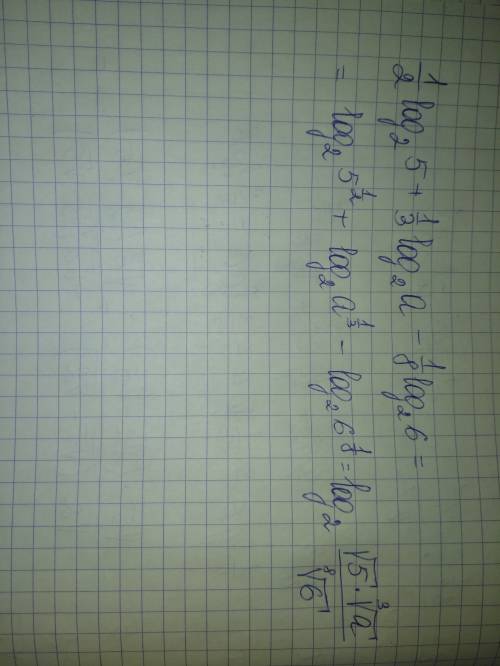 1/2 log₂ 5 + 1/3 log₂ a - 1/8 log₂ 6 =
= log₂ 5^(1/2) + log₂ a^(1/3) - log₂ 6^(1/8) = log₂ (√5 · ∛a)/(⁸√6)